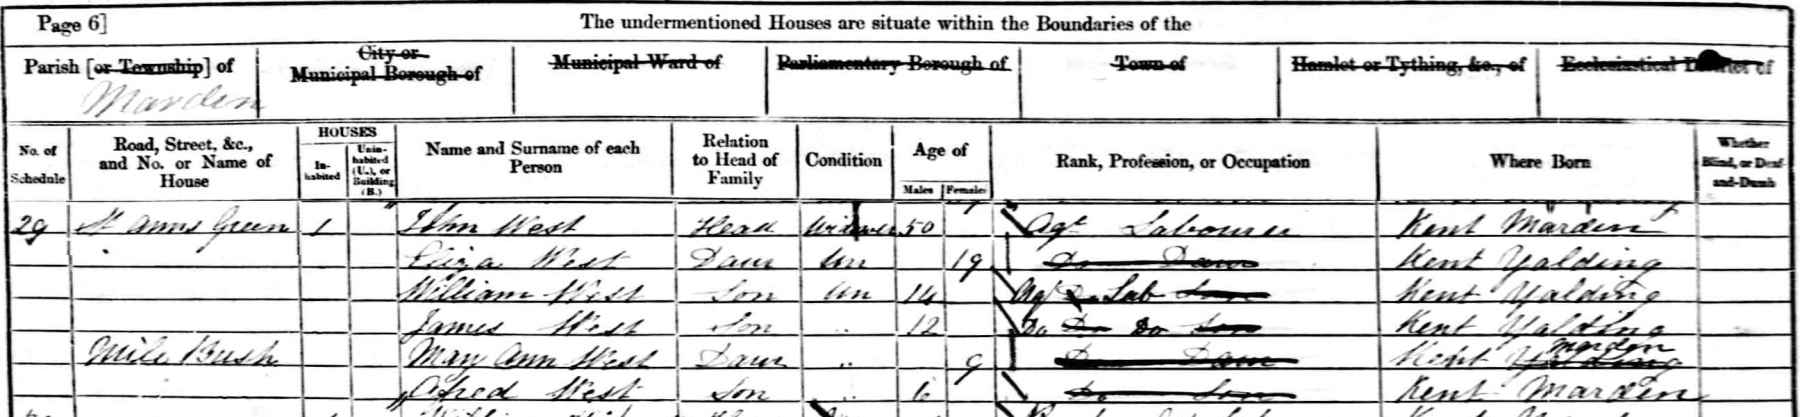 Page 6]
The undermentioned Houses are situate within the Boundaries of the
Parish [or Township] of
City or
Municipal Borough of
Municipal Ward of
Parliamentary Borough of
Town of
Hamlet or Tything, &c., of
Ecclesiastical District of
Marden
No. of Schedule
Road, Street, &c., and No. or Name of House
HOUSES
In-habited
Unin-habited (U.), or Building (B.)
Name and Surname of each Person
Relation to Head of Family
Condition
Age of
Males
Females
Rank, Profession, or Occupation
Where Born
Whether Blind, or Deaf-and-Dumb
29 St Anns Green 1 John West Head Widower 50 Agt Labourer Kent Marden
Eliza West Daur Un 19 Do Daur Kent Yalding
William West Son Un 14 Ag Do Lab Son Kent Yalding
James West Son .. 12 Do Do Do Son Kent Yalding
Mile Bush Mary Ann West Daur .. 9 Do Daur Kent Yalding Marden
Alfred West Son .. 6 Do Son Kent Marden